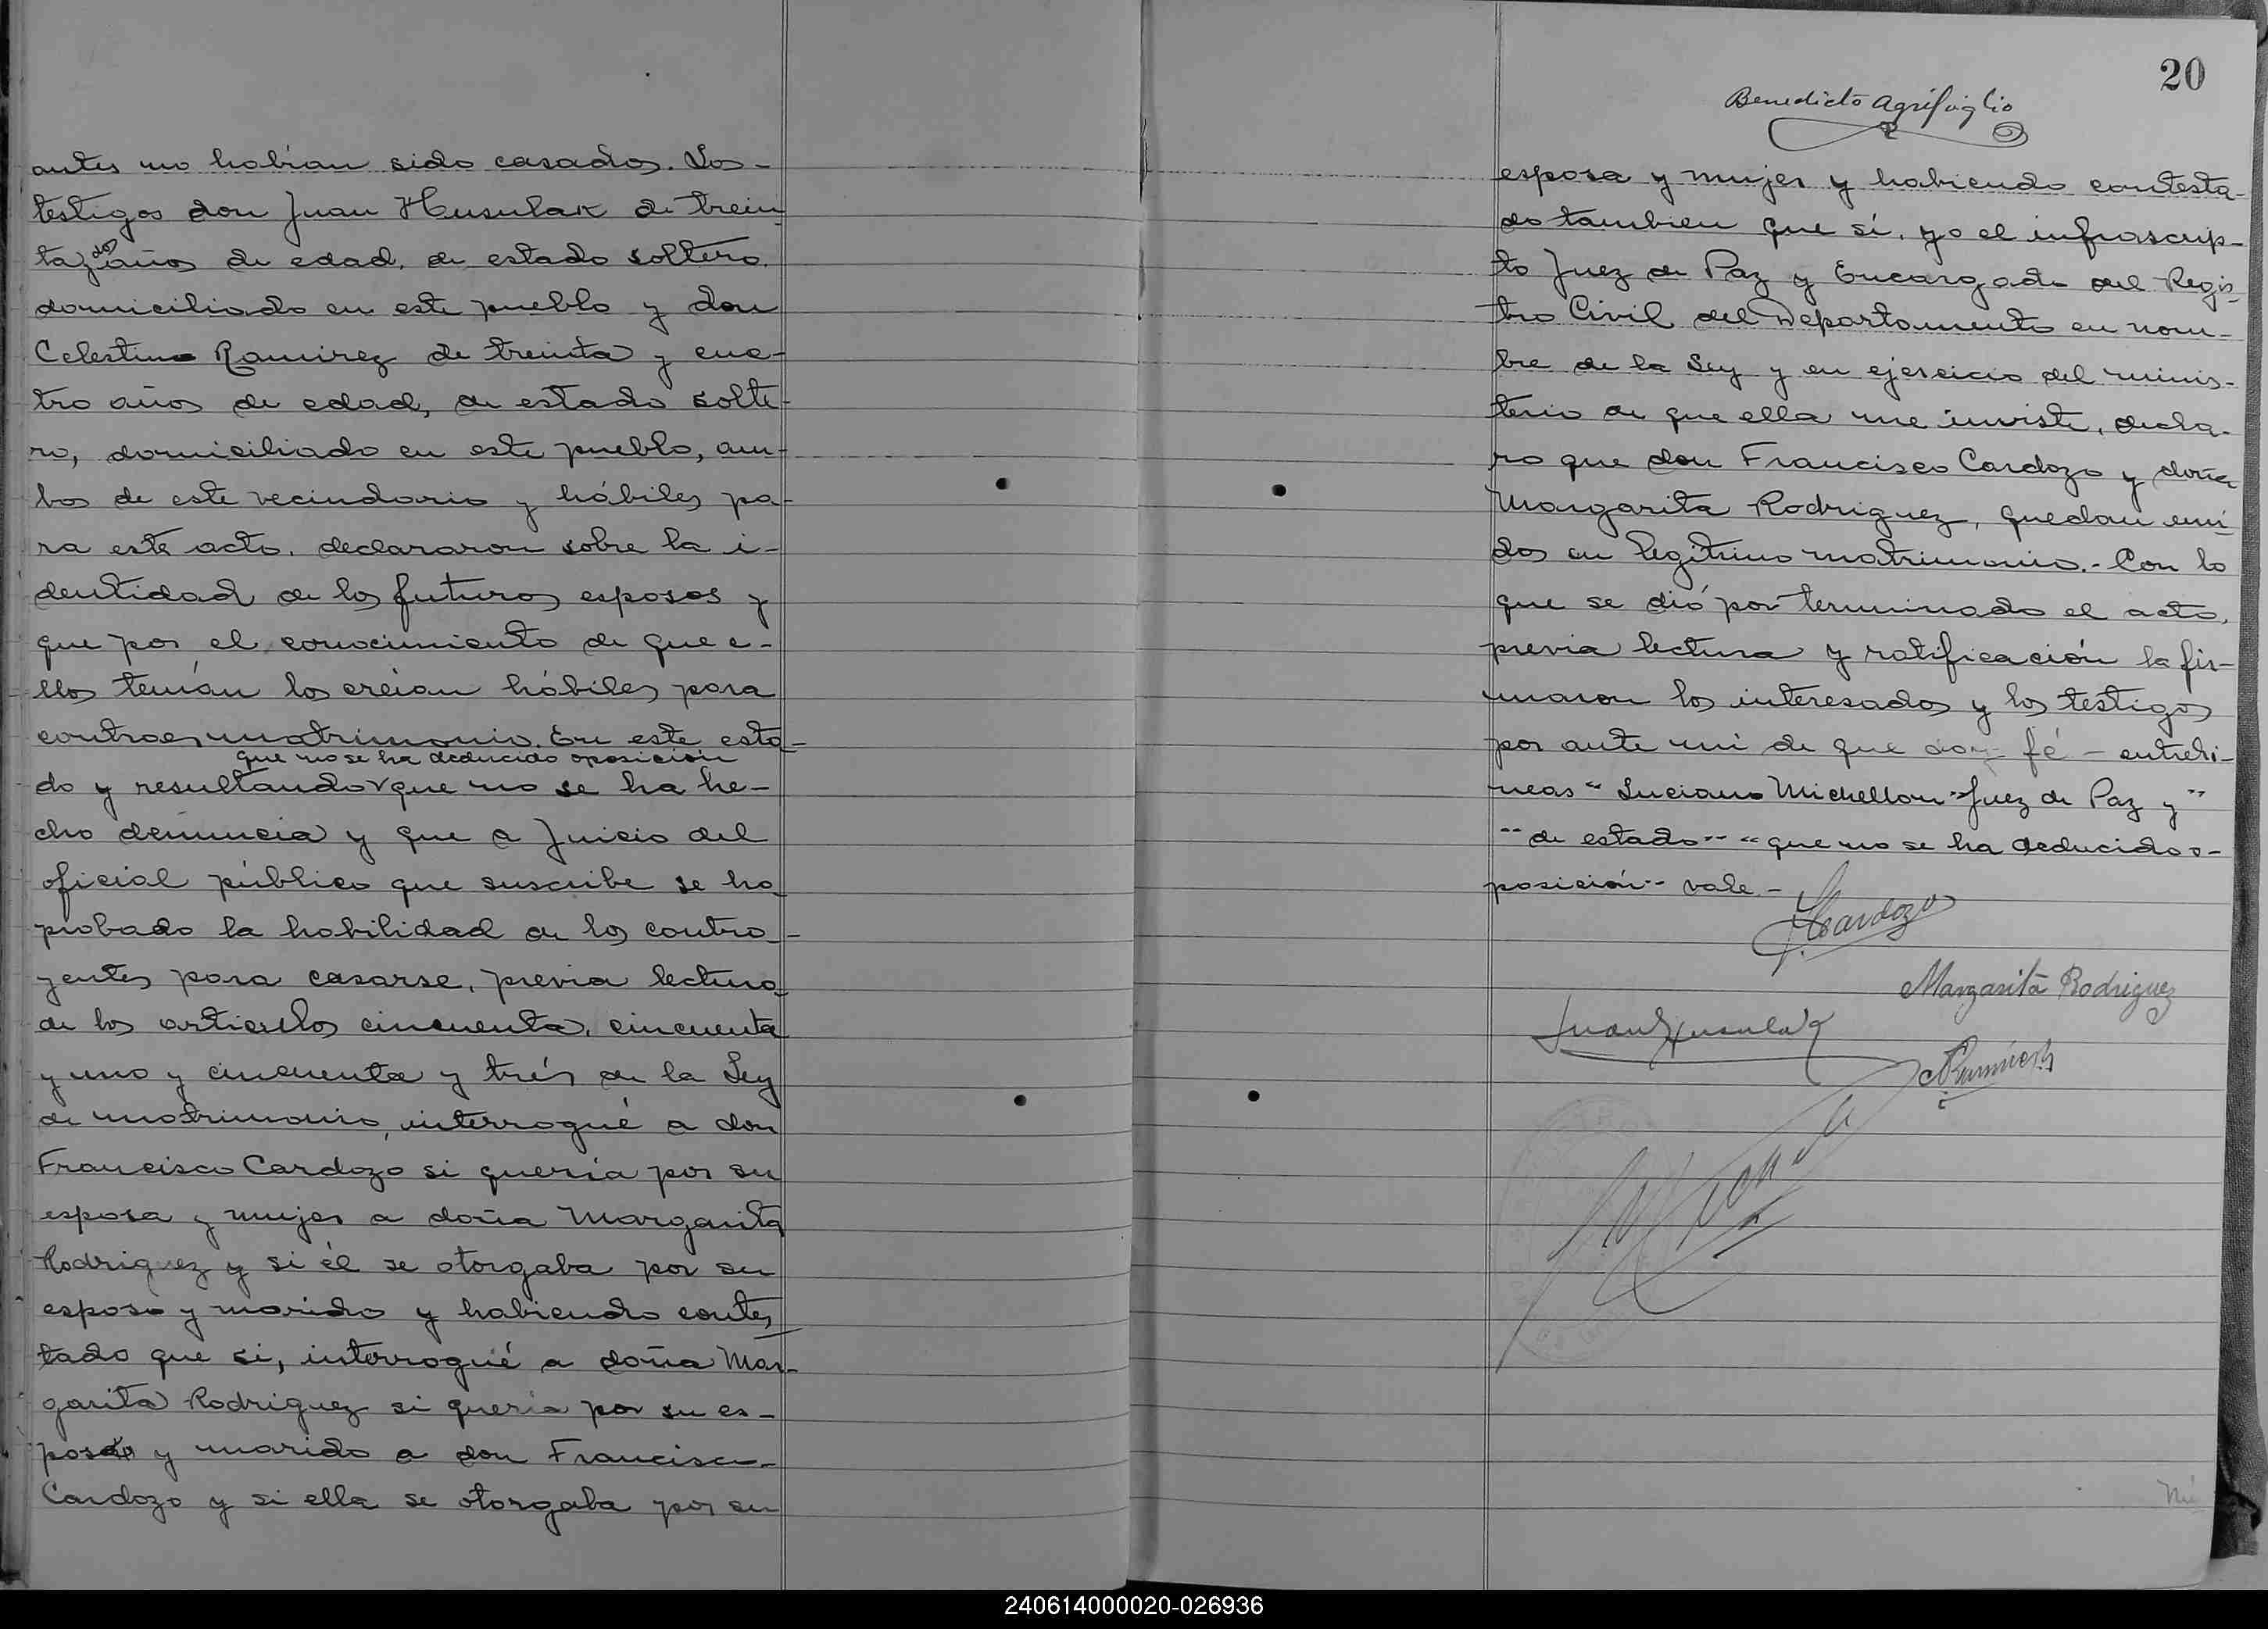 antes no habían sido casados. Los
testigos don Juan Husulak de trein
tay dos años de edad, de estado soltero
domiciliado en este pueblo y don
Celestino Ramirez de treinta y cua-
tro años de edad, de estado solte
ro, domiciliado en este pueblo, am-
bos de este vecindario y hábiles pa-
ra este acto, declararon sobre la i-
dentidad de los futuros esposos y
que por el conocimiento de que e-
llos tenían los creían hábiles para
contraer matrimonio. En este esta-
que no se ha deducido oposición
do y resultando que no se ha he-
cho denuncia y que a Juicio del
oficial público que suscribe se ha
probado la habilidad de los contra-
yentes para casarse, previa lectura
de los articulos cincuenta, cincuenta
y uno y cincuenta y trés de la Ley
de matrimonio, interrogué a don
Francisco Cardozo si quería por su
esposa y mujer a doña Margarita
Rodriguez y si él se otorgaba por su
esposo y marido y habiendo contes
tado que si, interrogué a doña Mar-
garita Rodriguez si quería por su es-
poso y marido a don Francisco
Cardozo y si ella se otorgaba por su
20
Benedicto Agrifoglio
esposa y mujer y habiendo contesta-
do tambien que sí, yo el infrascrip-
to Juez de Paz y Encargado del Regis-
tro Civil del Departamento en nom-
bre de la Ley y en ejercicio del minis-
terio de que ella me inviste, decla-
ro que don Francisco Cardozo y doña
Margarita Rodriguez, quedan uni
dos en legitimo matrimonio.- Con lo
que se dió por terminado el acto,
previa lectura y ratificación la fir-
maron los interesados y los testigos
por ante mi de que doy fé - entreli-
neas "Luciano Michellon" Juez de Paz y"
"de estado" "que no se ha deducido o-
posición" vale.-
F. Cardozo
Margarita Rodriguez
Juan Husulak
C Ramirez
240614000020-026936